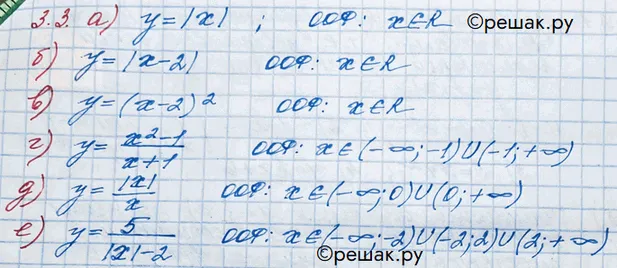 3.3. а) y=|x| ; ООФ: x∈R ©решак.ру
б) y=|x-2| ООФ: x∈R
в) y=(x-2)² ООФ: x∈R
г) y=x²-1/x+1 ООФ: x∈(-∞;-1)∪(-1;+∞)
д) y=|x|/x ООФ: x∈(-∞;0)∪(0;+∞)
е) y=5/|x|-2 ООФ: x∈(-∞;-2)∪(-2;2)∪(2;+∞)
©решак.ру